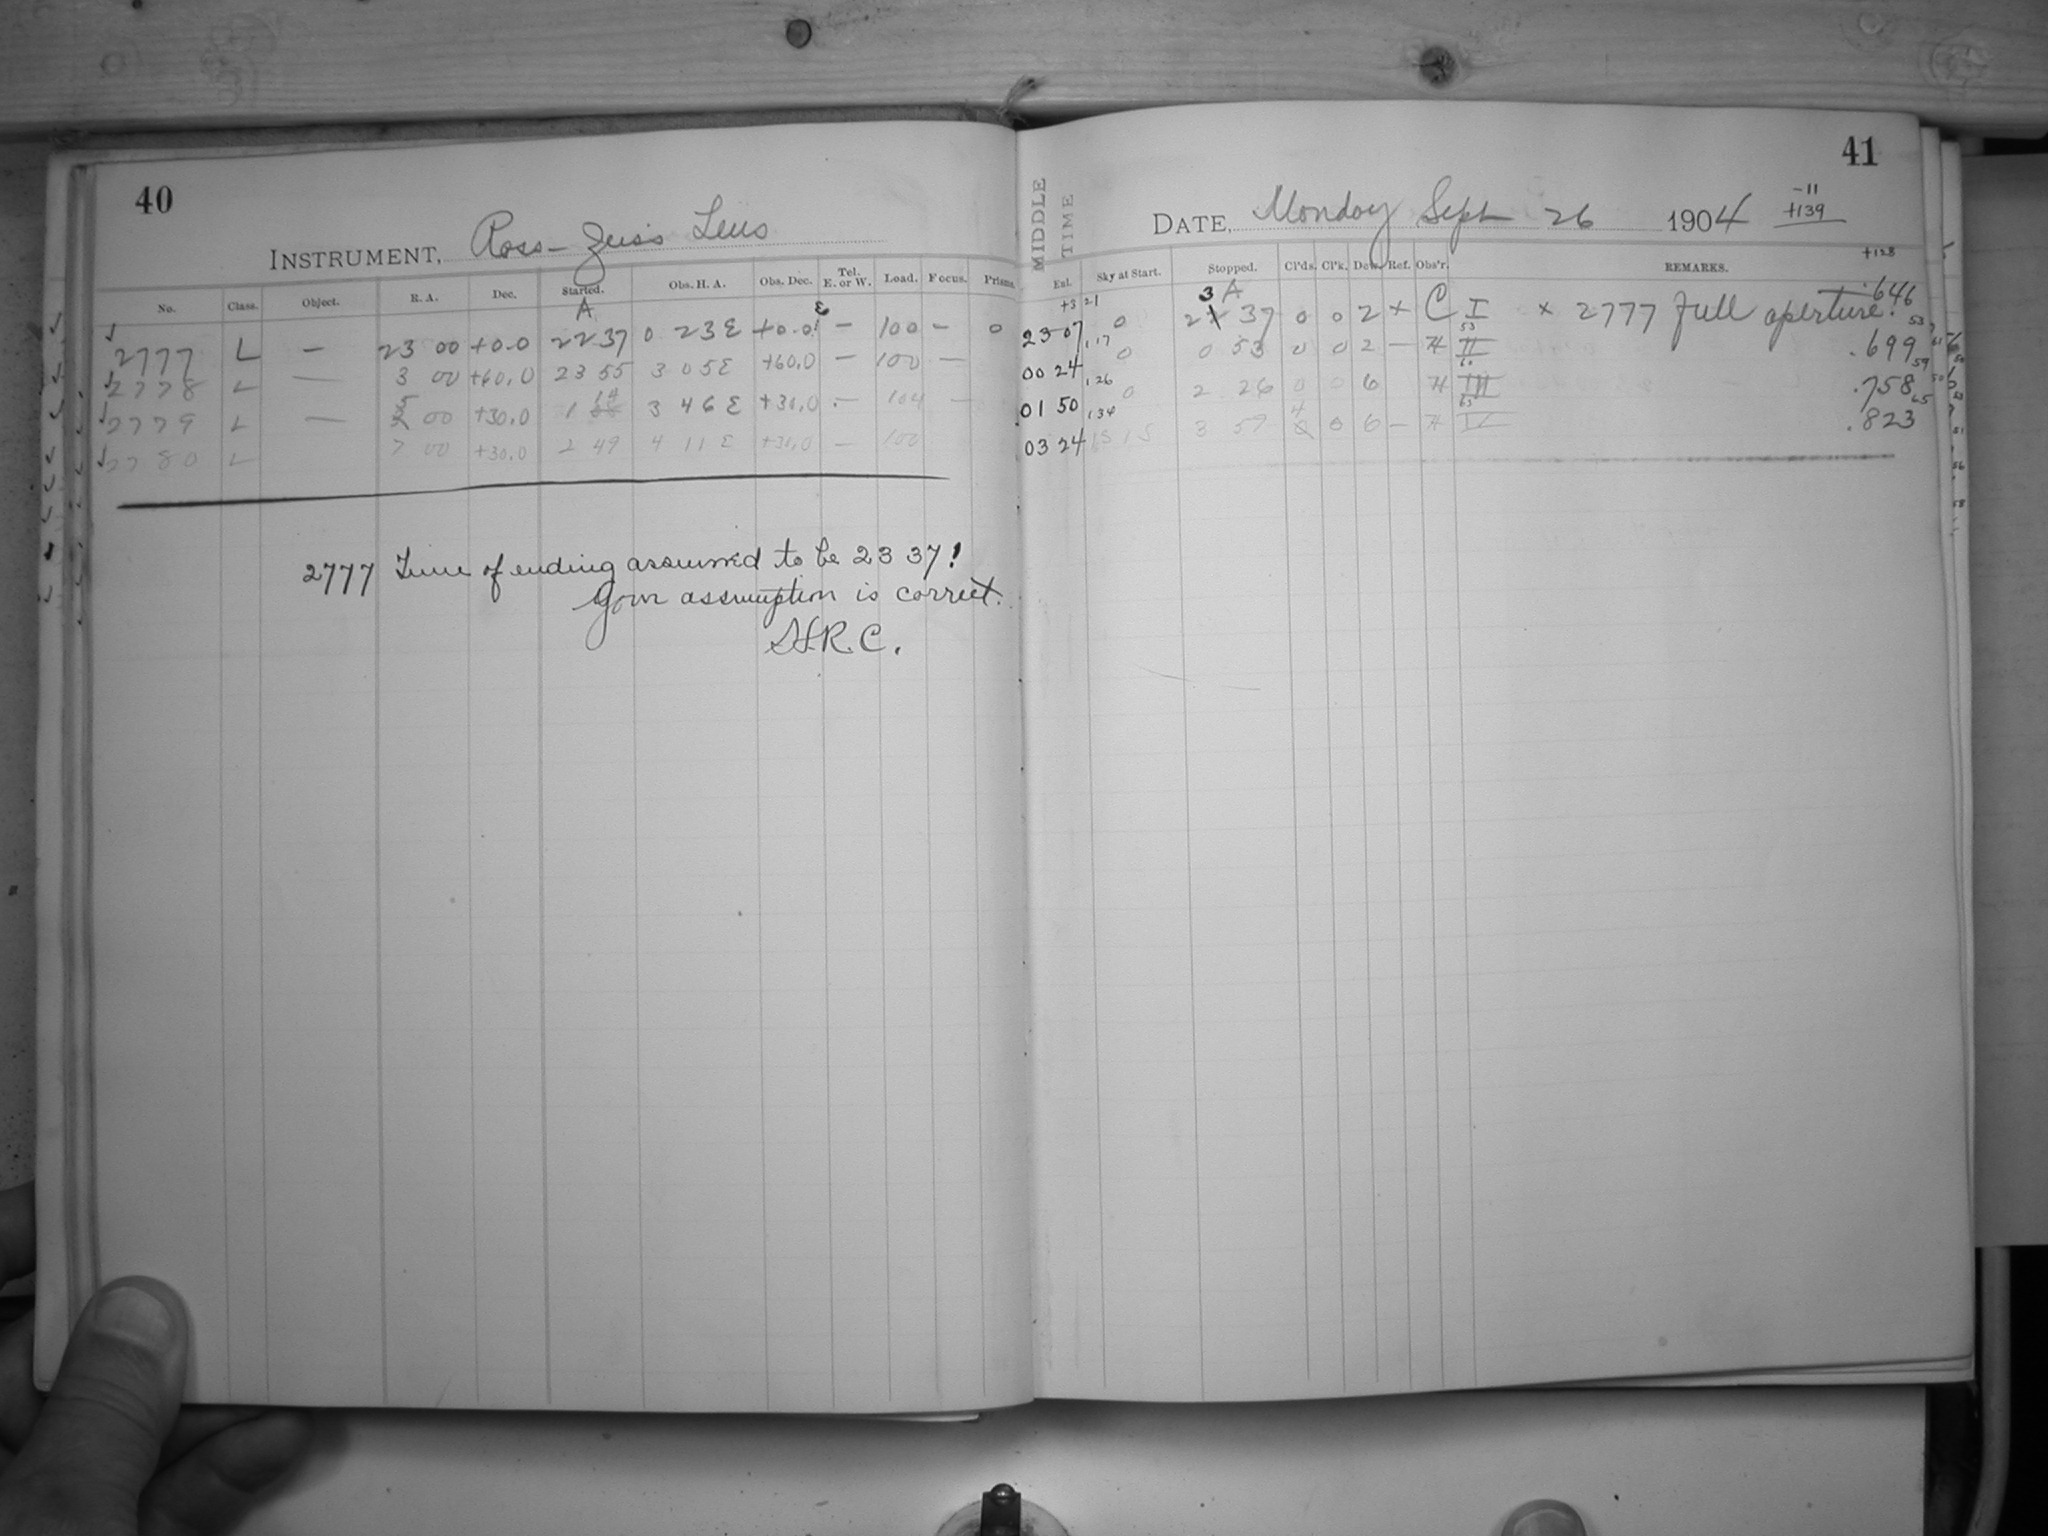 40
INSTRUMENT, Ross-Zeiss Lens
No. Class. Object. R. A. Dec. Started. Obs. H. A. Obs. Dec. Tel. E. or W. Load. Focus. Prisms.
A
2777 L — 23 00 +0.0 22 37 0 23 E +0.0 — 100 — 0
2778 L — 3 00 +60.0 23 55 3 05 E +60.0 — 100 —
2779 L — 5 00 +30.0 1 14 3 46 E +30.0 — 104 —
2780 L 7 00 +30.0 2 49 4 11 E +30.0 — 100
2777 Time of ending assumed to be 23 37!
Your assumption is correct.
H.R.C.
41
MIDDLE TIME
DATE, Monday Sept 26 1904
-11
+139
+128
Exl. Sky at Start. Stopped. Cl'ds. Cl'k. Dew. Ref. Obs'r. REMARKS.
+3 21
3 A
23 07 0 2 37 0 0 2 × C I × 2777 full aperture. .646
00 24 0 0 53 0 0 2 — H II .699
01 50 0 2 26 0 0 6 H III .758
03 24 3 57 4 0 6 — H IV .823